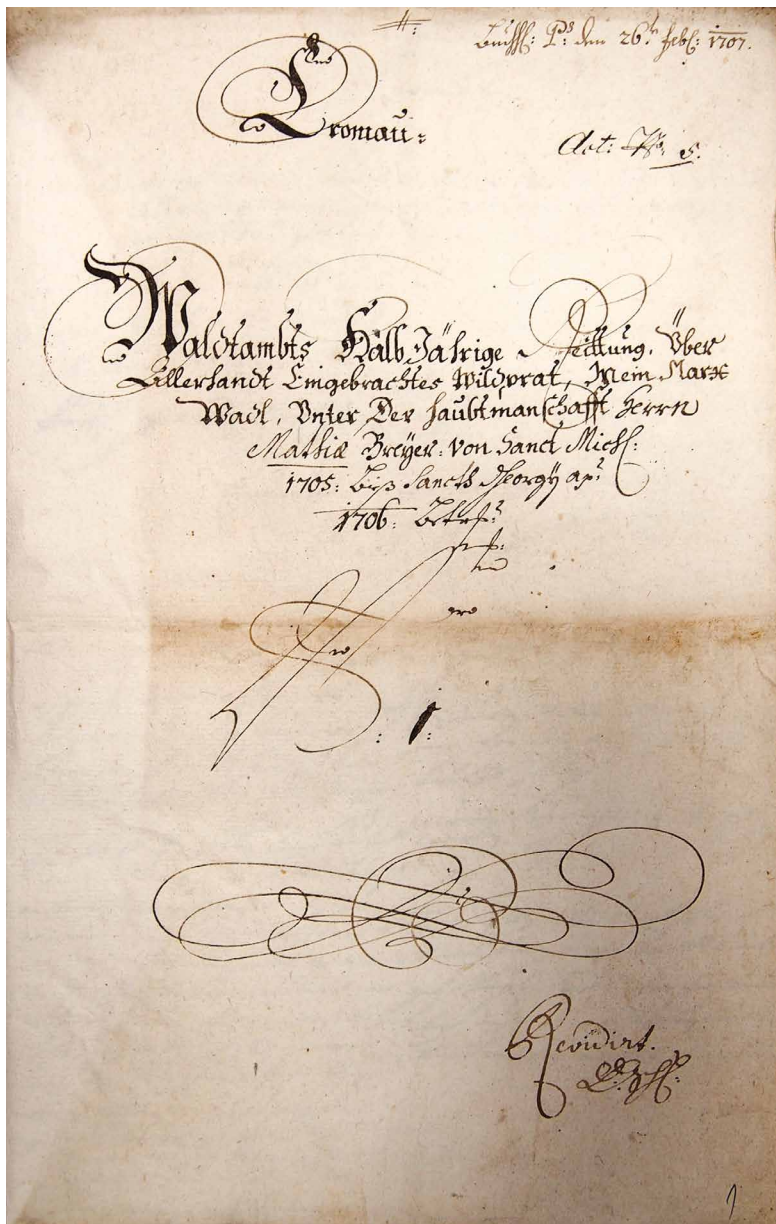 den 26t. Feb: 1707.
Cromau:
Act: No: 5.
Waldtambts Halb Jährige Reittung, Über
Allerhandt Eingebrachtes Wildprat, Mein Marx
Wadl, Unter Der Haubtmanschafft Herrn
Mathiæ Breÿer: von Sanct Mich:
1705: biß Sancti Georgÿ ao:
1706:
No: 1:
Revidirt.